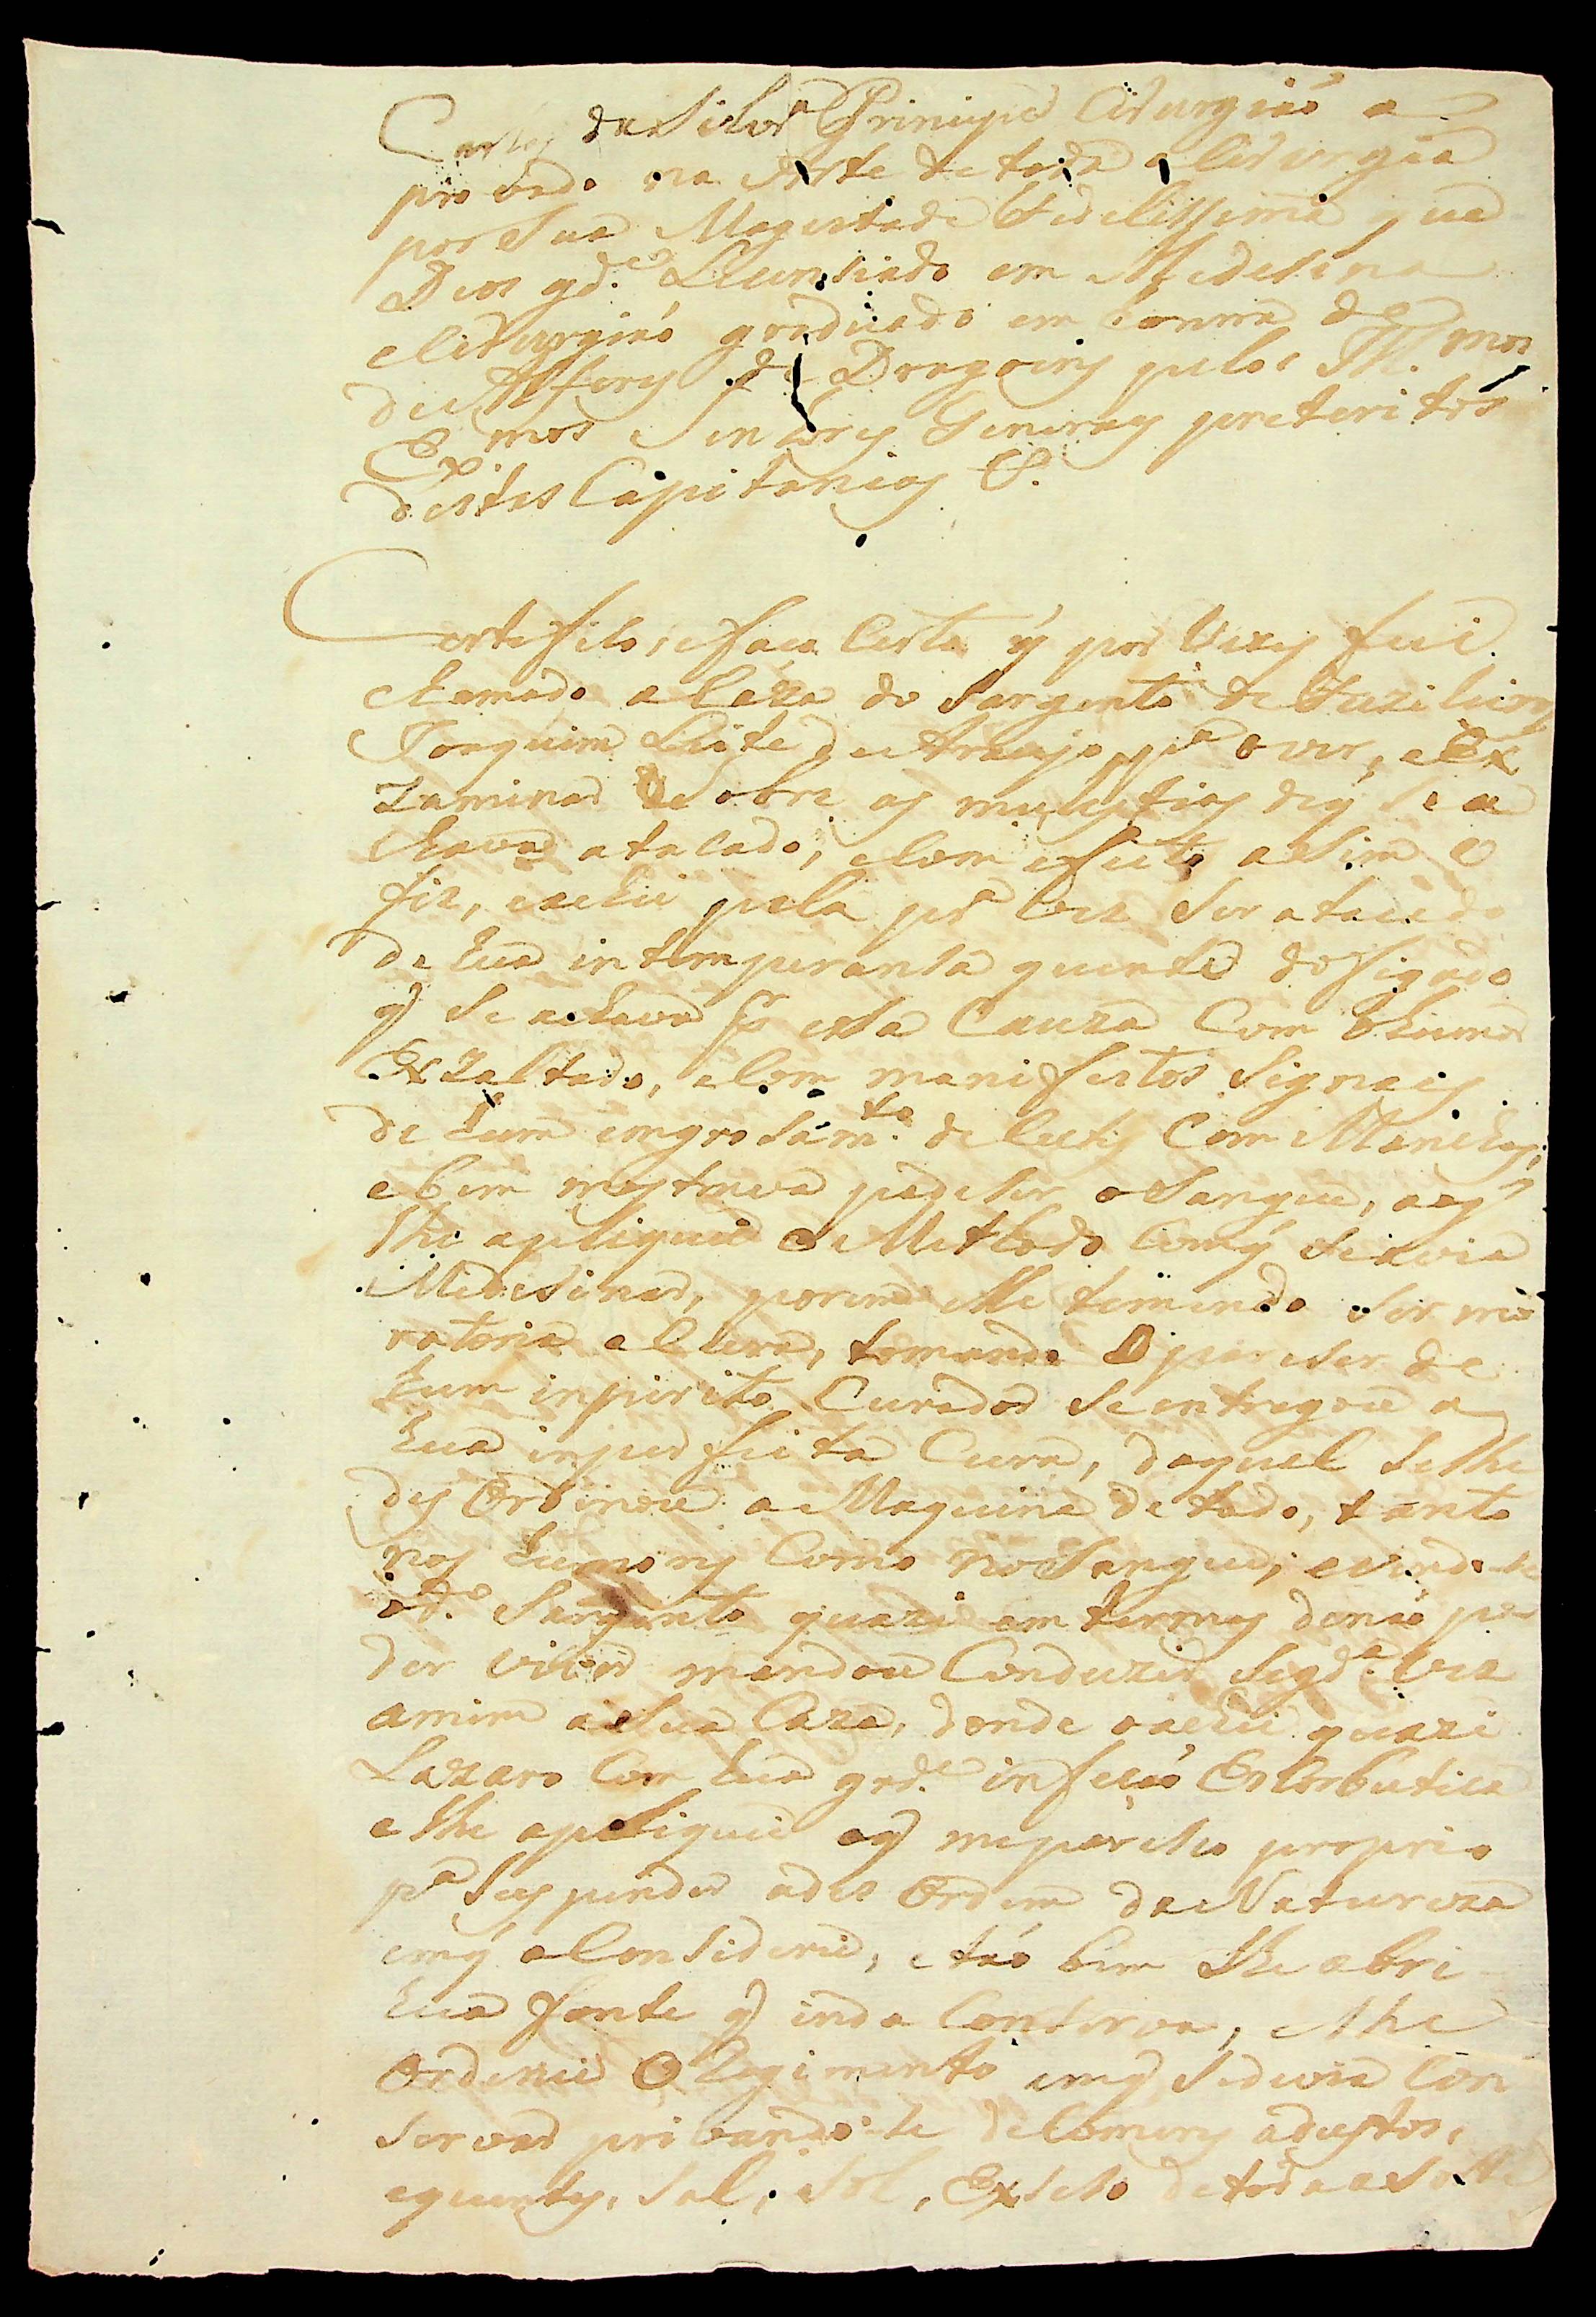 Carlos da Silvª Principe Cirurgiaó a
provado na Arte de toda a Cirurgia
por Sua Magestade Fidelissima que
Deos gd.e Lisensiado em Medesina
e Cirurgiaó graduado em honra de
de Alferes de Dragoens pelos Ill.mos
Ex.mos Senhores Generaes preteritos
destas Capitanias &.
Certefico, e faço Certo q̃ por Vezes fui
chamado a Caza do Sargento de Fuzileiros
Joaquim Leite de Araujo pª o ver, e Ex
zaminar Sobre as mulestias de q̃ Se a
chava atacado, e Com efeito asim o
fiz, e achei pela prª Vez Ser atacado
de hua intemperansa quente do figado
q̃ Se achava pr esta Cauza Com o humor
Exzaltado, e Com manifestos Signais
de hum engrosam.to de Cutis Com Manchas,
e bem mostrava padeser o Sangue, a q̃
lhe apeliquei o Methodo Com q̃ Se avia
Medesinar, porem elle temendo Ser mo
ratoria a Cura, tomando o pareser de
hum inperito Curador Se entregou a
hua inperfeita Cura, da qual Se lhe
des Ordenou a Maquina de todo, tanto
nos humores Como no Sangue, e vendo-se
o d.o Sargento quazi em termos de naó po
der viver mandou Conduzir Segd.a Vez
a mim a Sua Caza, donde o achei quazi
Lazaro Com hua grd.e infesaó Escorbutica
e lhe apeliquei o q̃ me pareseo proprio
pª Suspender a des Ordem da Natureza
em q̃ o Considerei, e taó bem lhe abri
hua fonte q̃ inda Conserva, e lhe
Ordenei o Regimento em q̃ Se devia Con
servar pribando-se de Comeres adustos,
e quentes, Sal, Sol, Exseso de toda a Sorte